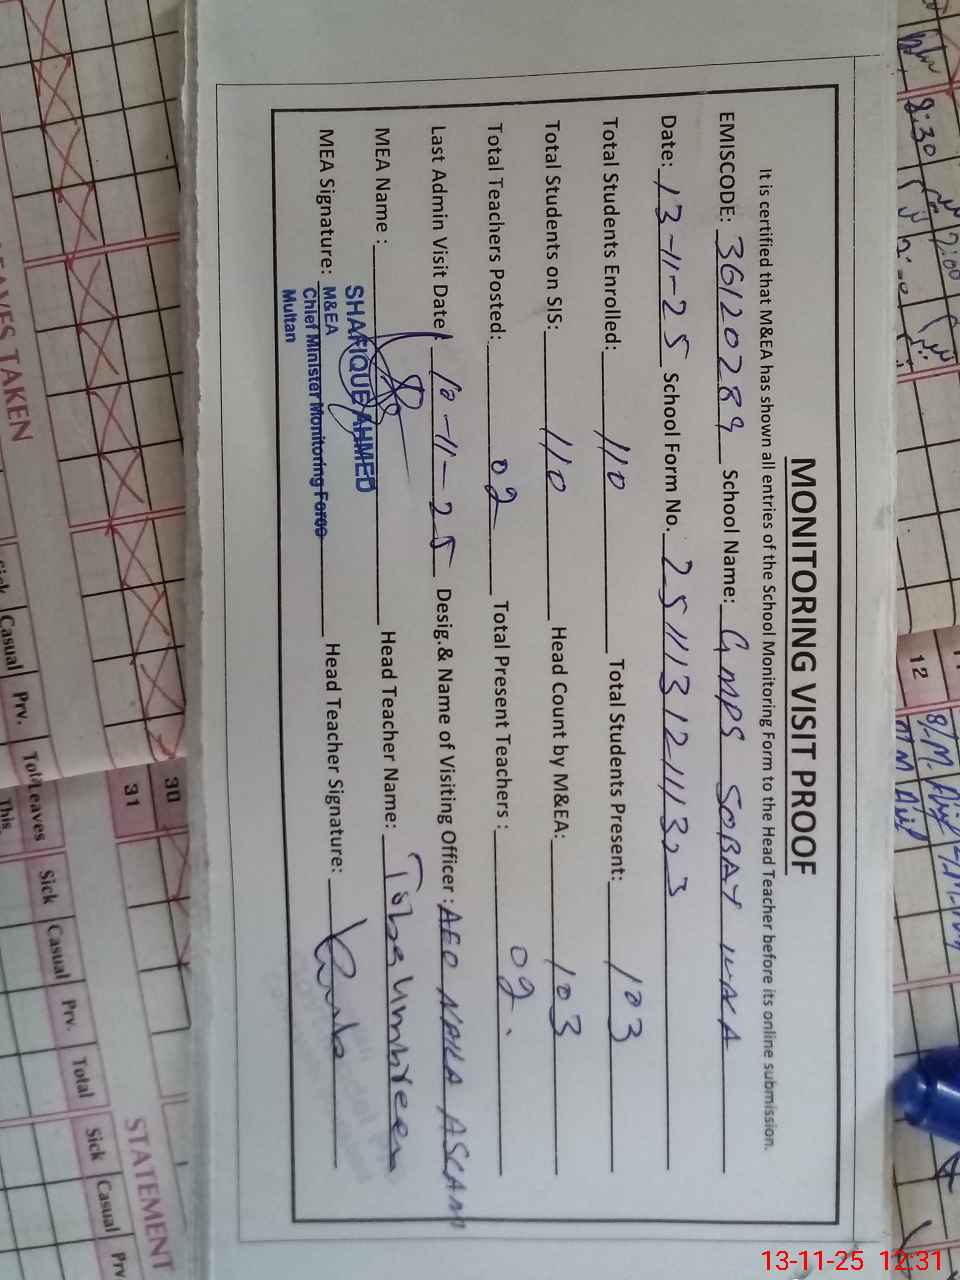 MONITORING VISIT PROOF
It is certified that M&EA has shown all entries of the School Monitoring Form to the Head Teacher before its online submission.
EMISCODE: 36120289 School Name: GMPS SOBAY WALA
Date: 13-11-25 School Form No. 251113121113,3
Total Students Enrolled: 110 Total Students Present: 103
Total Students on SIS: 110 Head Count by M&EA: 103
Total Teachers Posted: 02 Total Present Teachers : 02.
Last Admin Visit Date 10-11-25 Desig.& Name of Visiting Officer : AEO NAILA ASLAM
MEA Name : Head Teacher Name: Toba Umbreen
SHAFIQUE AHMED
MEA Signature: M&EA Head Teacher Signature:
Chief Minister Monitoring Force
Multan
8:30
2:00
12
30
31
LEAVES TAKEN
Sick Casual Prv. Total
Leaves
This
Sick Casual Prv. Total
Sick Casual Prv
STATEMENT
13-11-25 12:31